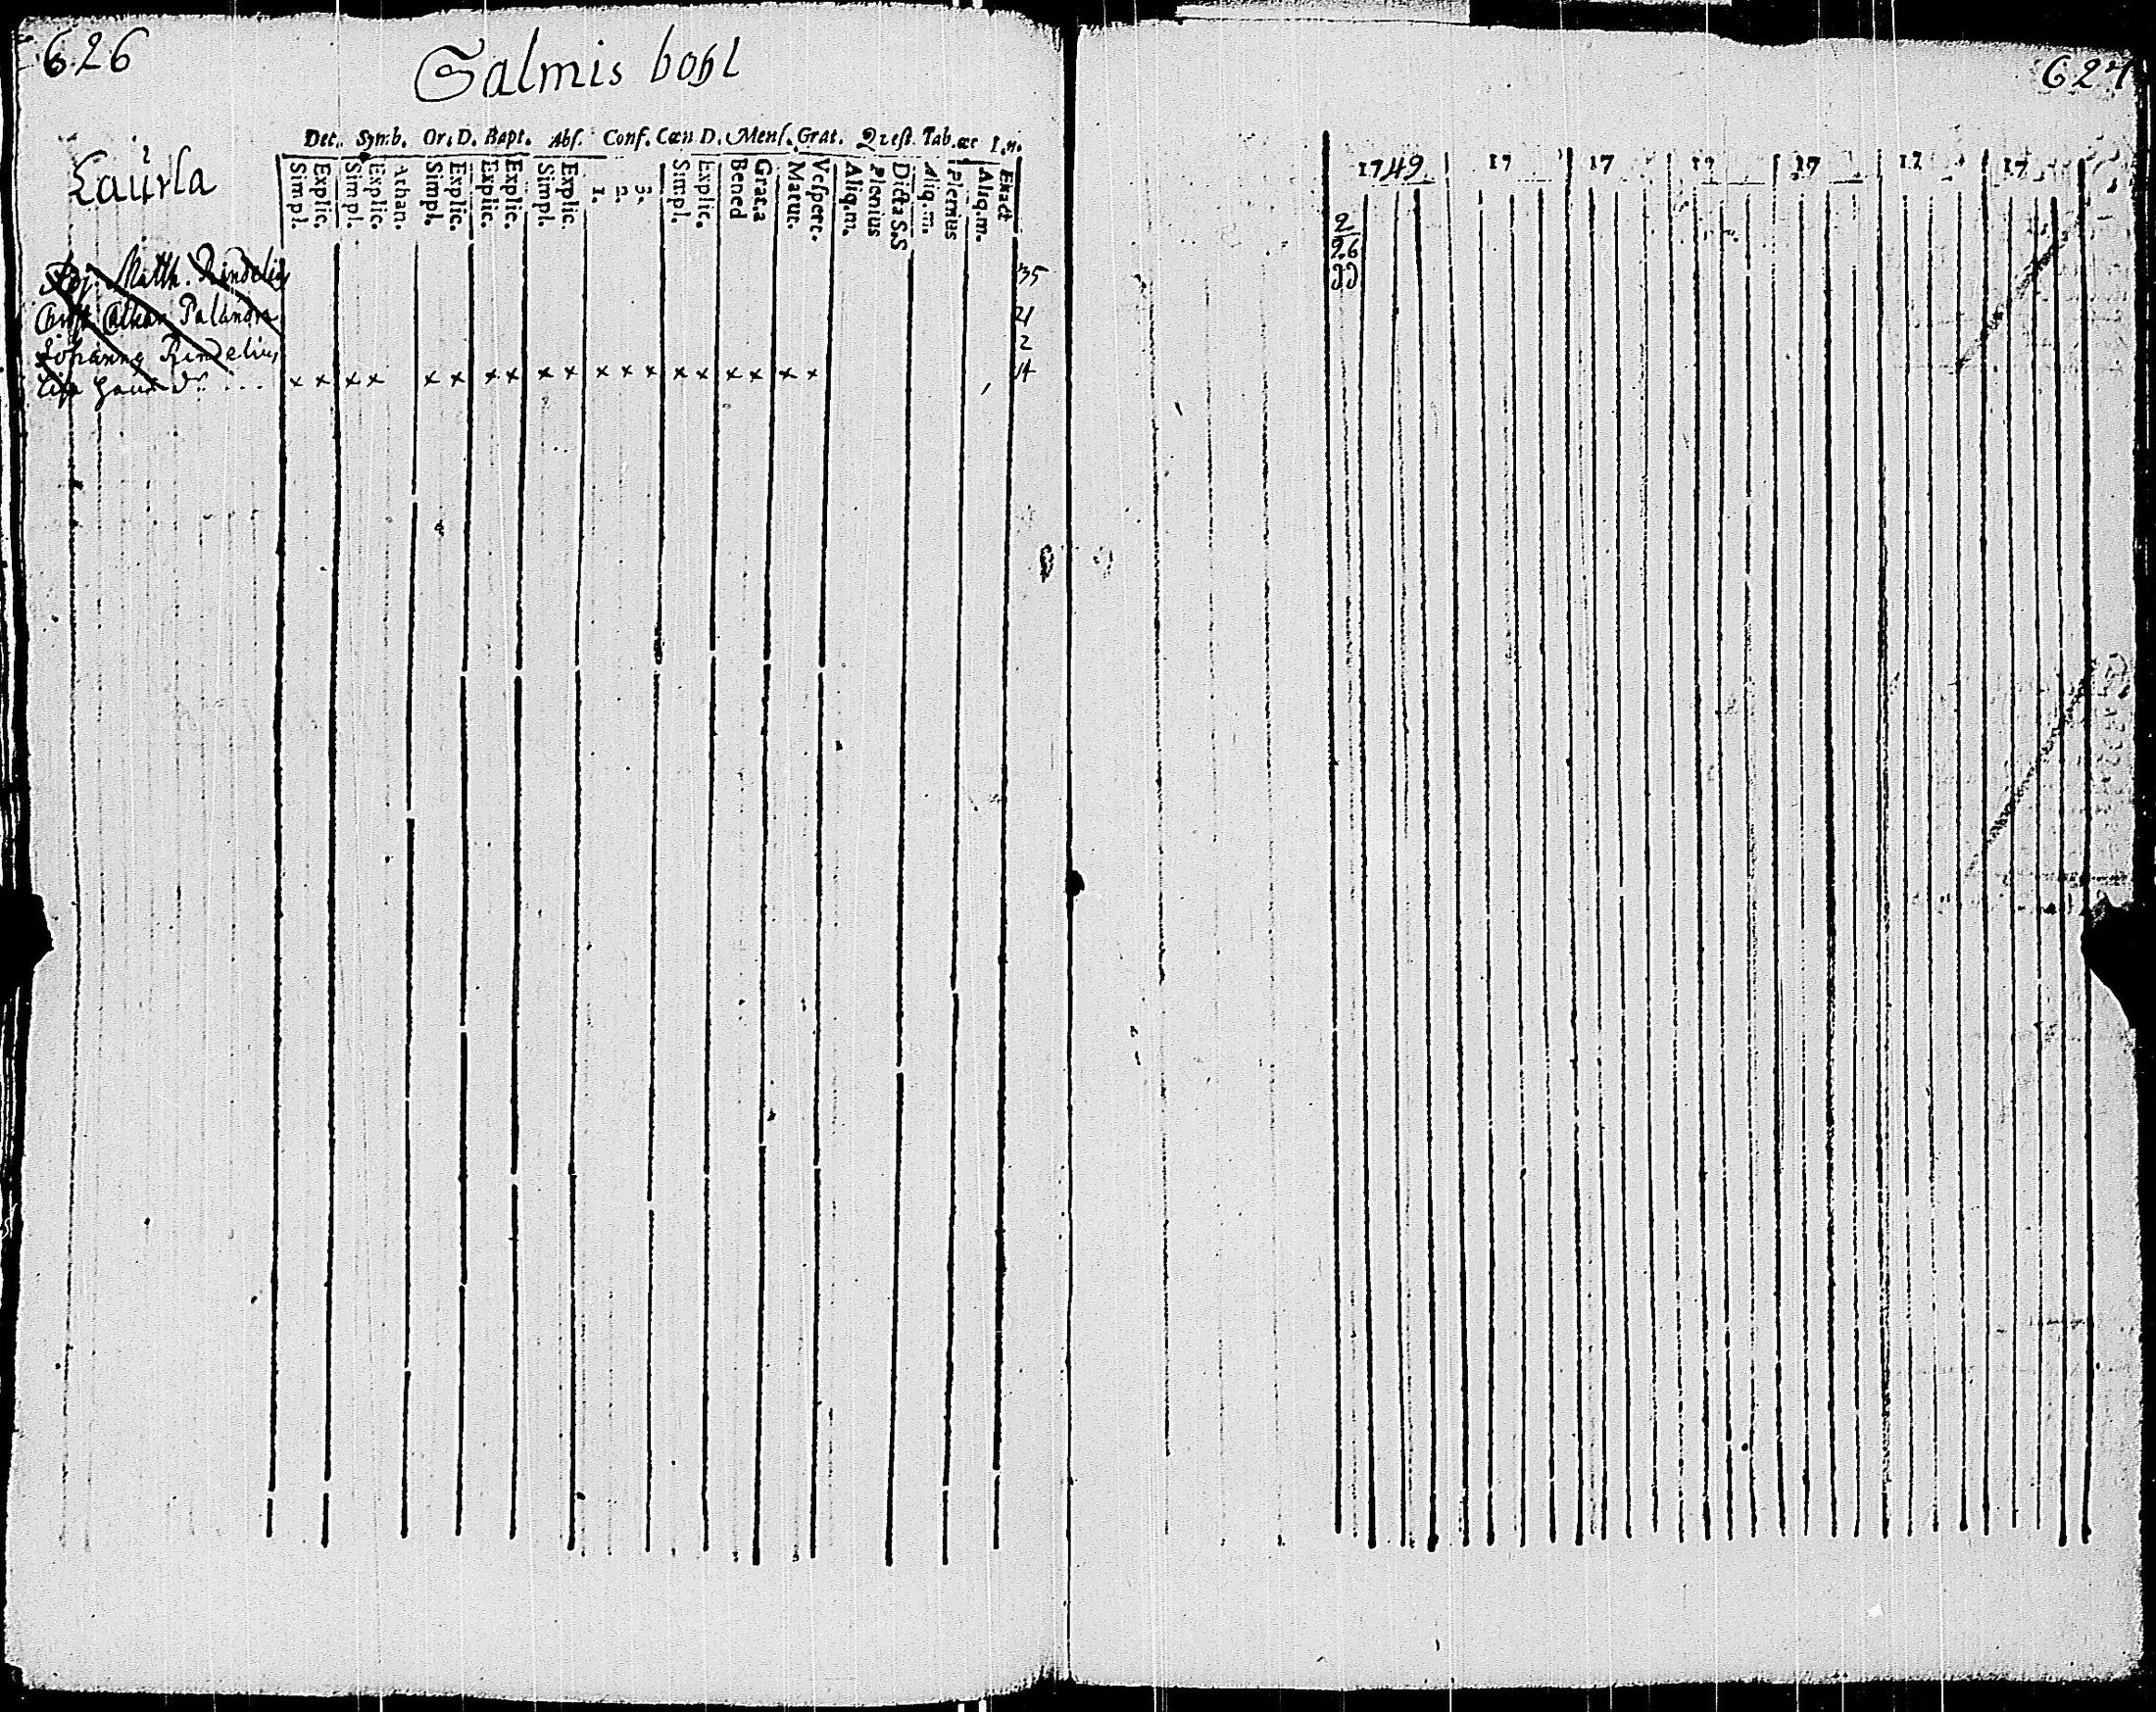 626
Salmis bohl
Dec. Symb. Or. D. Bapt. Abs. Conf. Cœn D. Mens. Grat. Qvest. Tab. œc I. n.
Laurla
Simpl. Explic. Simpl. Explic. Athan. Simpl. Explic. Explic. Explic. Simpl. Explic. 1. 2. 3. Simpl. Explic. Bened Grat.a Matut. Vespert. Aliq.m. Plenius Dicta S.S Aliq.m. Plenius Aliq.m. Exact
Matth. Rindelius 35
Cathar. Palandra 21
Johannes Rindelius 2
Lisa x x x x x x x x x x x x x x x x x x x 14
627
1749 17 17 17 17 17 17
2
26